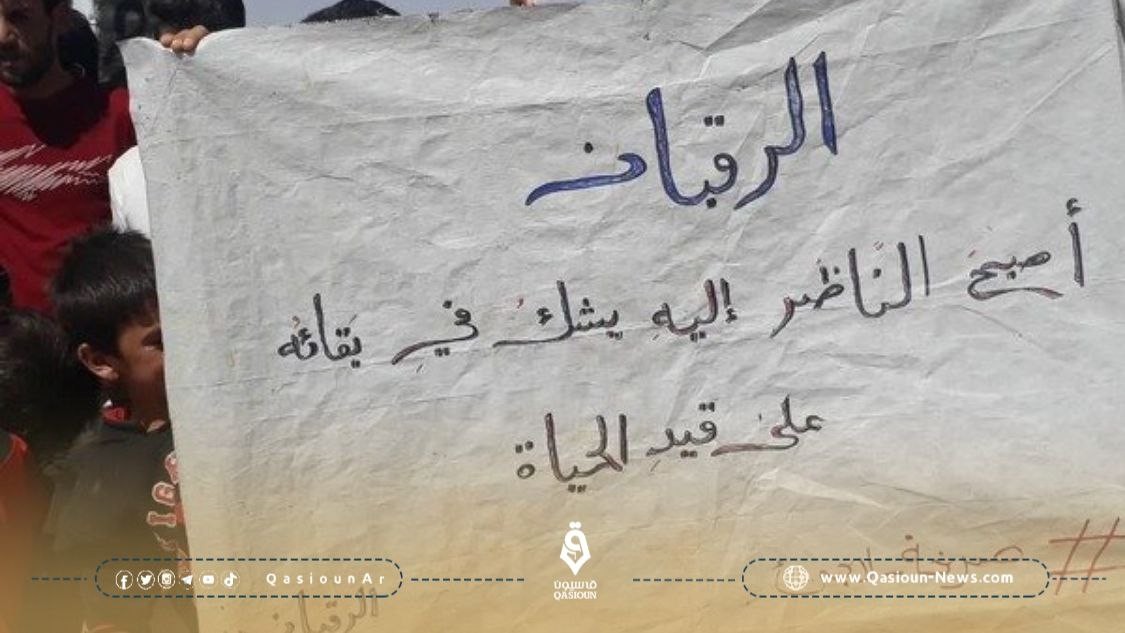 الرقبان
أصبح الناظر إليهِ يشك في بقائه
على قيدِ الحياة
#صرخة
الرقبان
QasiounAr
قاسيون
QASIOUN
www.Qasioun-News.com